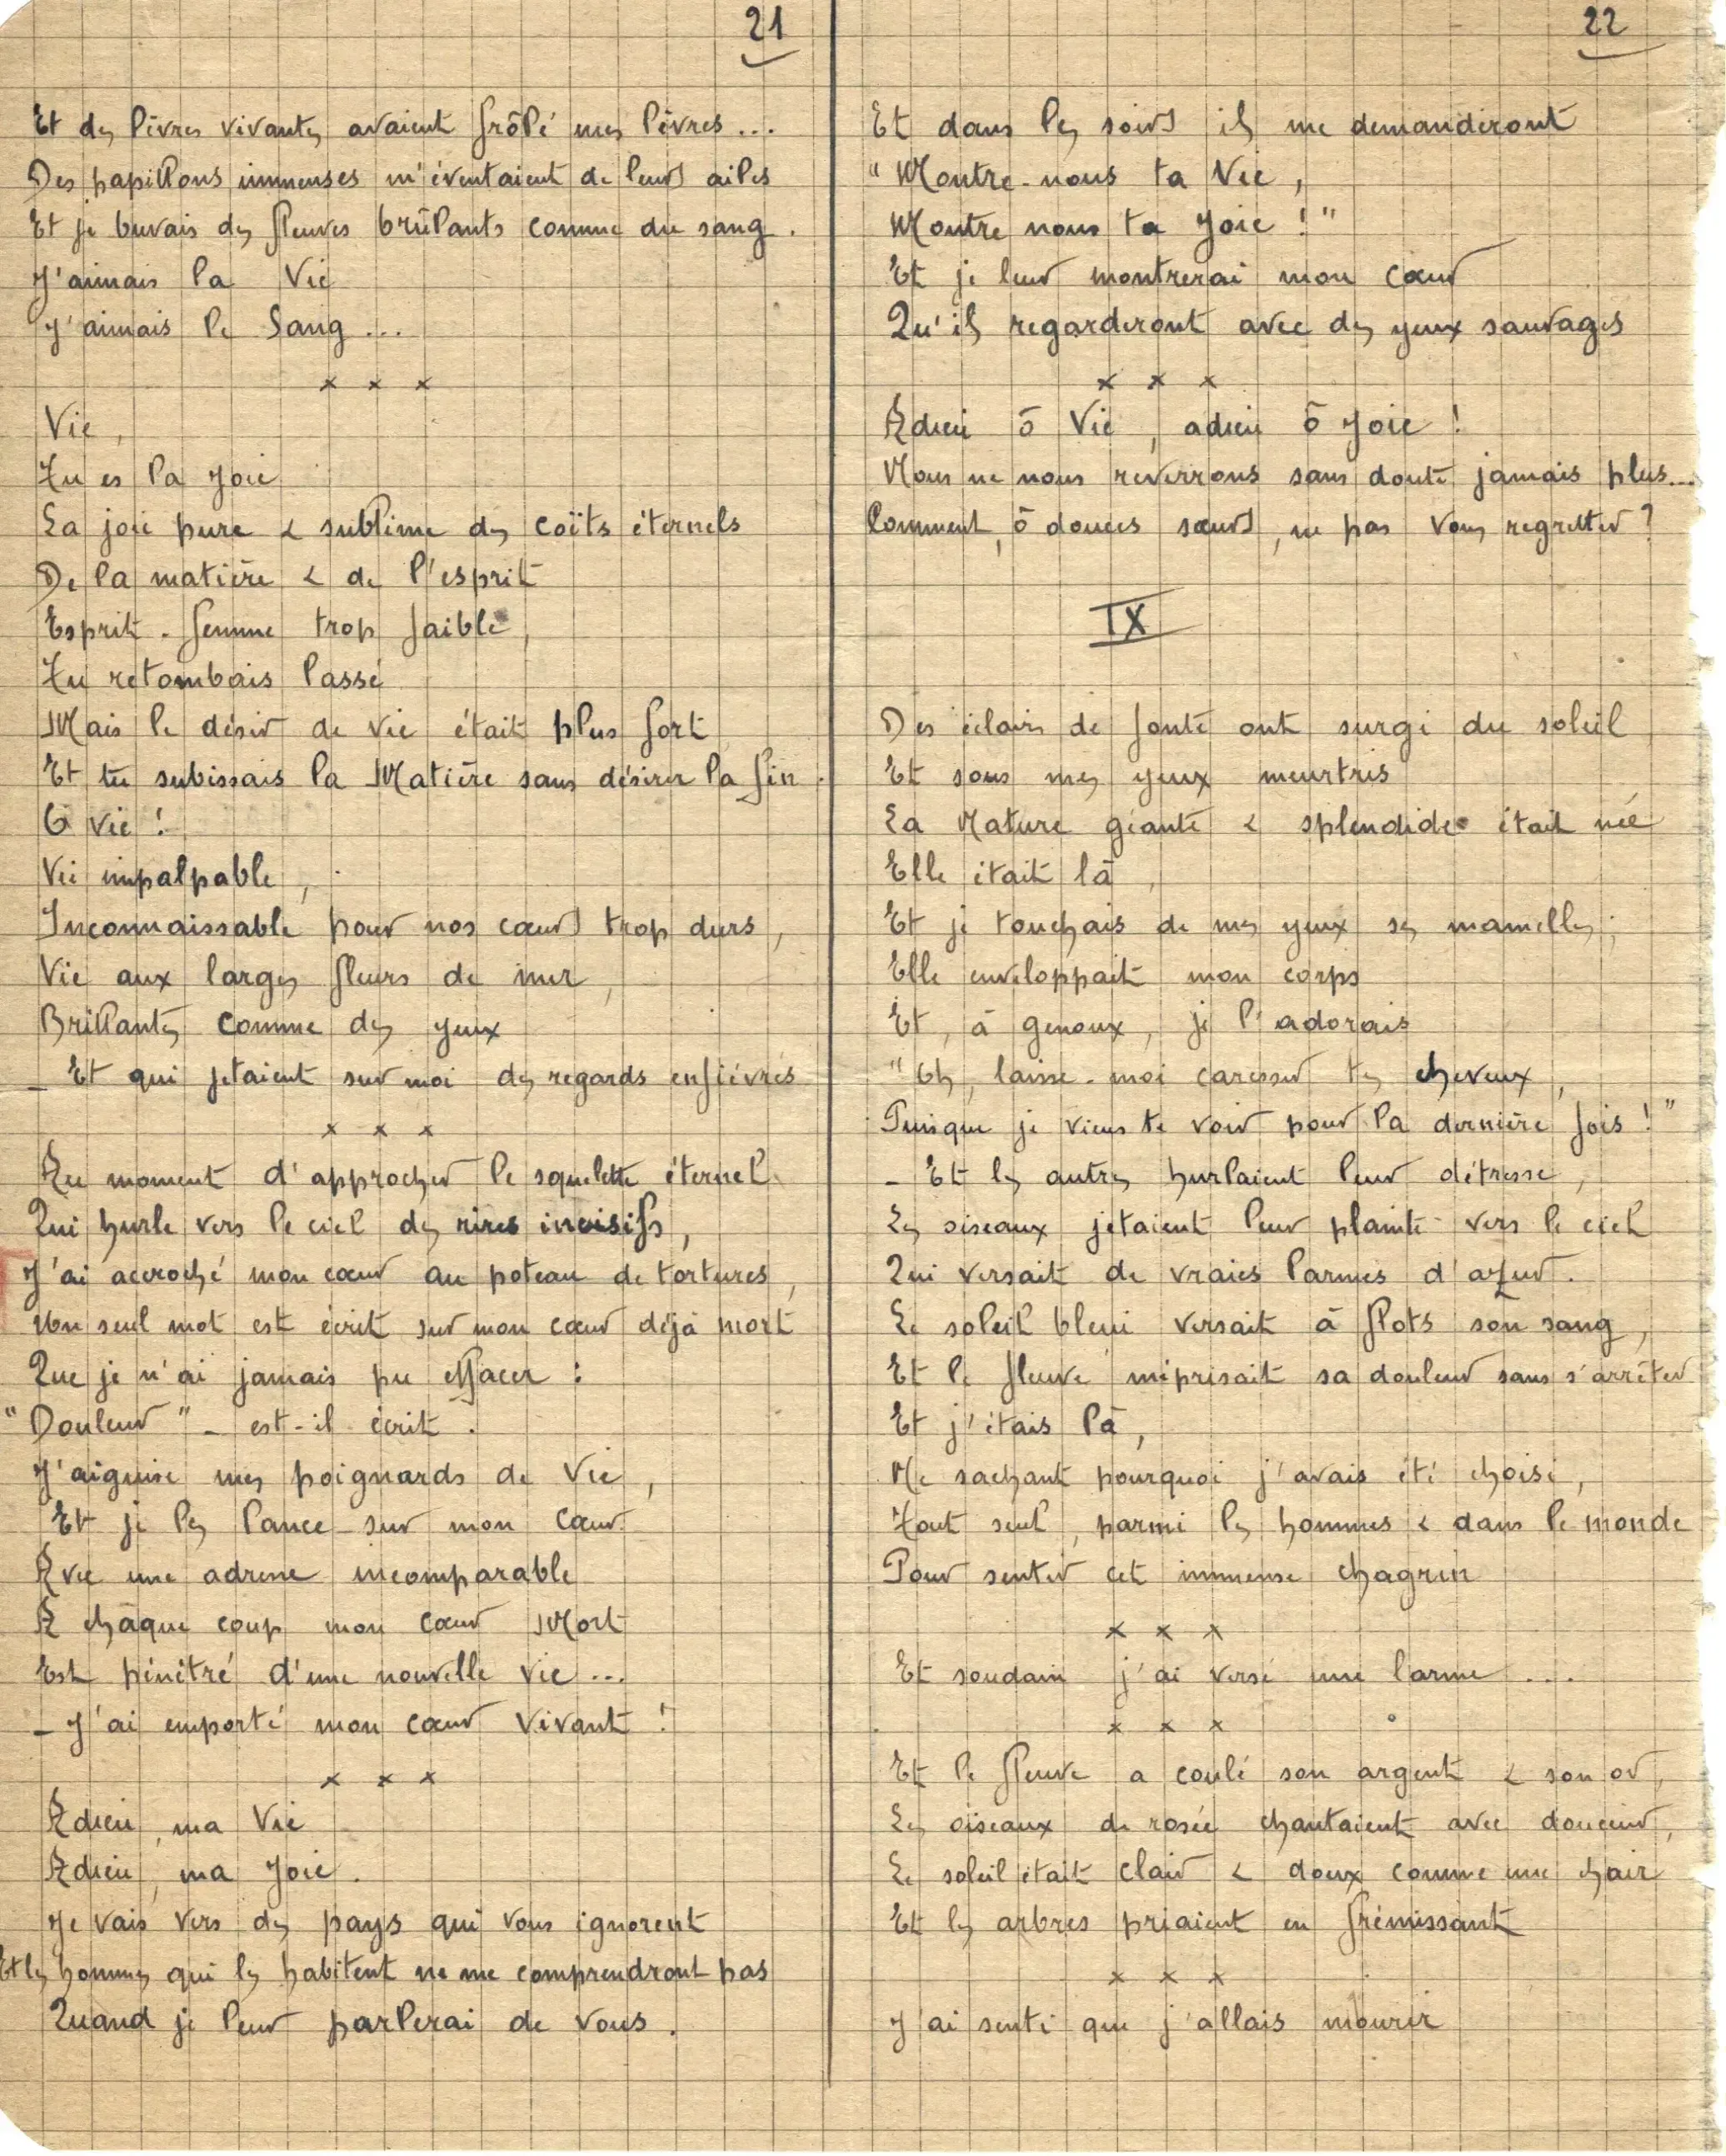 21
Et des lèvres vivantes avaient frôlé mes lèvres...
Des papillons immenses m'éventaient de leurs ailes
Et je buvais des fleuves brûlants comme du sang.
J'aimais la Vie
J'aimais le Sang...
x x x
Vie,
Tu es la Joie
La joie pure & sublime des coïts éternels
De la matière & de l'esprit
Esprit. femme trop faible,
Tu retombais lassé
Mais le désir de vie était plus fort
Et tu subissais la Matière sans désirer la fin.
O vie !
Vie impalpable,
Inconnaissable pour nos cœurs trop durs,
Vie aux larges fleurs de mer,
Brillantes comme des yeux
_ Et qui jetaient sur moi des regards enfiévrés
x x x
Au moment d'approcher le squelette éternel
Qui hurle vers le ciel des rires incisifs,
J'ai accroché mon cœur au poteau de tortures,
Un seul mot est écrit sur mon cœur déjà mort
Que je n'ai jamais pu effacer :
"Douleur" _ est-il écrit.
J'aiguise mes poignards de Vie,
Et je les lance sur mon Cœur
Avec une adresse incomparable
A châque coup mon cœur Mort
Est pénétré d'une nouvelle vie...
_ J'ai emporté mon cœur Vivant !
x x x
Adieu, ma Vie
Adieu, ma Joie.
Je vais vers des pays qui vous ignorent
Et les hommes qui les habitent ne me comprendront pas
Quand je leur parlerai de vous.
22
Et dans les soirs ils me demanderont
"Montre-nous ta Vie,
Montre nous ta Joie !"
Et je leur montrerai mon cœur
Qu'ils regarderont avec des yeux sauvages
x x x
Adieu ô Vie, adieu ô Joie !
Nous ne nous reverrons sans doute jamais plus...
Comment, ô douces sœurs, ne pas vous regretter ?
IX
Des éclairs de fonte ont surgi du soleil
Et sous mes yeux meurtris
La Nature géante & splendide était née
Elle était là,
Et je touchais de mes yeux ses mamelles ;
Elle enveloppait mon corps
Et, à genoux, je l'adorais
"Eh, laisse-moi caresser tes cheveux,
Puisque je viens te voir pour la dernière fois !"
_ Et les autres hurlaient leur détresse,
Les oiseaux jetaient leur plainte vers le ciel
Qui versait de vraies larmes d'azur.
Le soleil bleui versait à flots son sang,
Et le fleuve méprisait sa douleur sans s'arrêter
Et j'étais là,
Ne sachant pourquoi j'avais été choisi,
Tout seul, parmi les hommes & dans le monde
Pour sentir cet immense chagrin
x x x
Et soudain j'ai versé une larme....
x x x
Et le fleuve a coulé son argent & son or,
Les oiseaux de rosée chantaient avec douceur,
Le soleil était clair & doux comme une chair
Et les arbres priaient en frémissant
x x x
J'ai senti que j'allais mourir